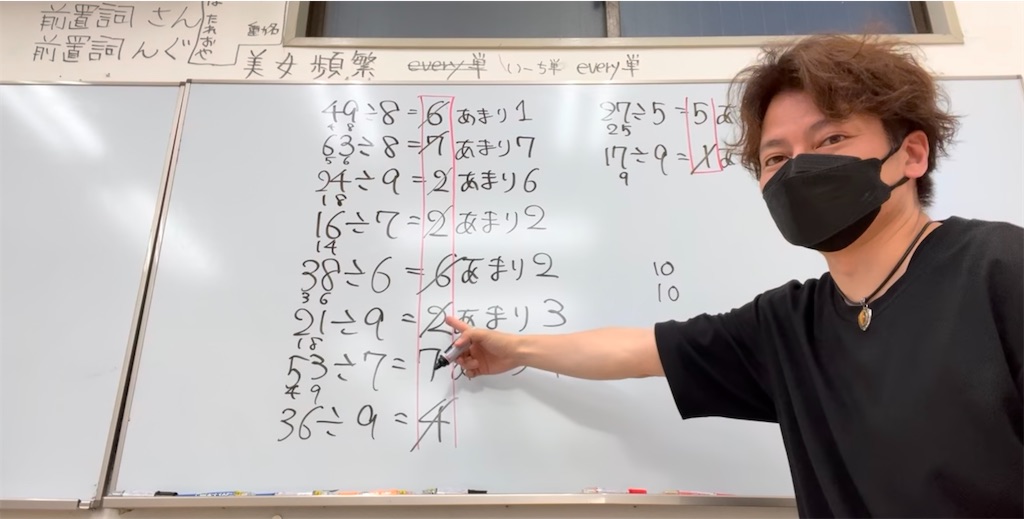 前置詞 さん
前置詞 んぐ
はたれおや
美女 頻繁 every単 いーち単 every単
49÷8=6あまり1
48
63÷8=7あまり7
56
24÷9=2あまり6
18
16÷7=2あまり2
14
38÷6=6あまり2
36
21÷9=2あまり3
18
53÷7=7
49
36÷9=4
27÷5=5あ
25
17÷9=1あ
9
10
10